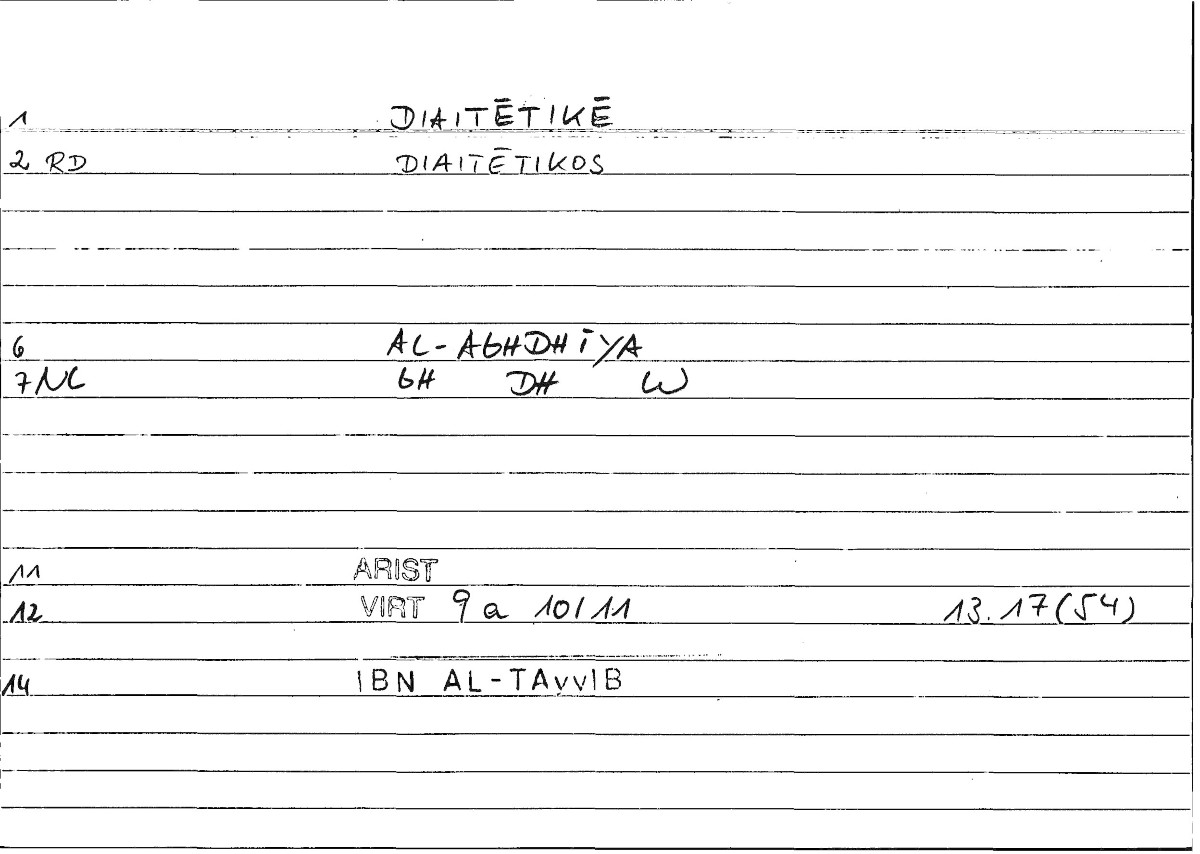 1 DIAITĒTIKĒ
2 RD DIAITĒTIKOS
6 AL-AGHDHIYA
7 NL GH DH W
11 ARIST
12 VIRT 9 a 10/11 13.17(54)
14 IBN AL-TAYYIB